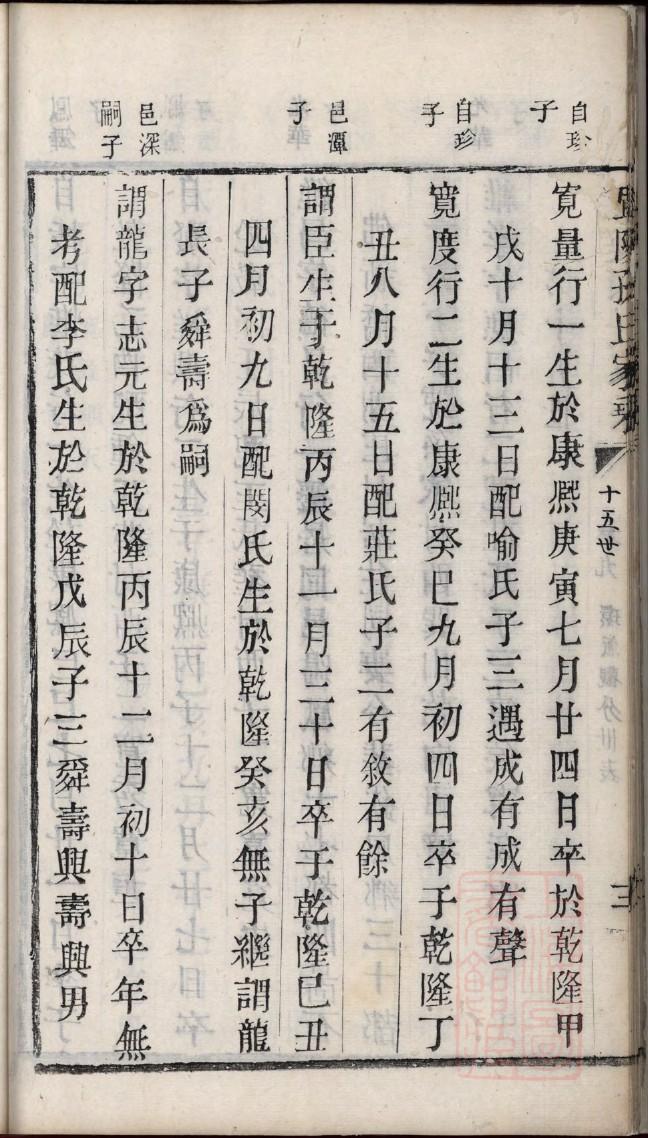 豐陵孫氏家乘
十五世
三
自珍
子
寬量行一生於康熈庚寅七月廿四日卒於乾隆甲
戌十月十三日配喻氏子三遇成有成有聲
自珍
子
寬度行二生於康熈癸巳九月初四日卒于乾隆丁
丑八月十五日配莊氏子二有敘有餘
邑潭
子
謂臣生于乾隆丙辰十一月二十日卒于乾隆己丑
四月初九日配閔氏生於乾隆癸亥無子繼謂龍
長子舜壽爲嗣
邑深
嗣子
謂龍字志元生於乾隆丙辰十二月初十日卒年無
考配李氏生於乾隆戊辰子三舜壽興壽興男